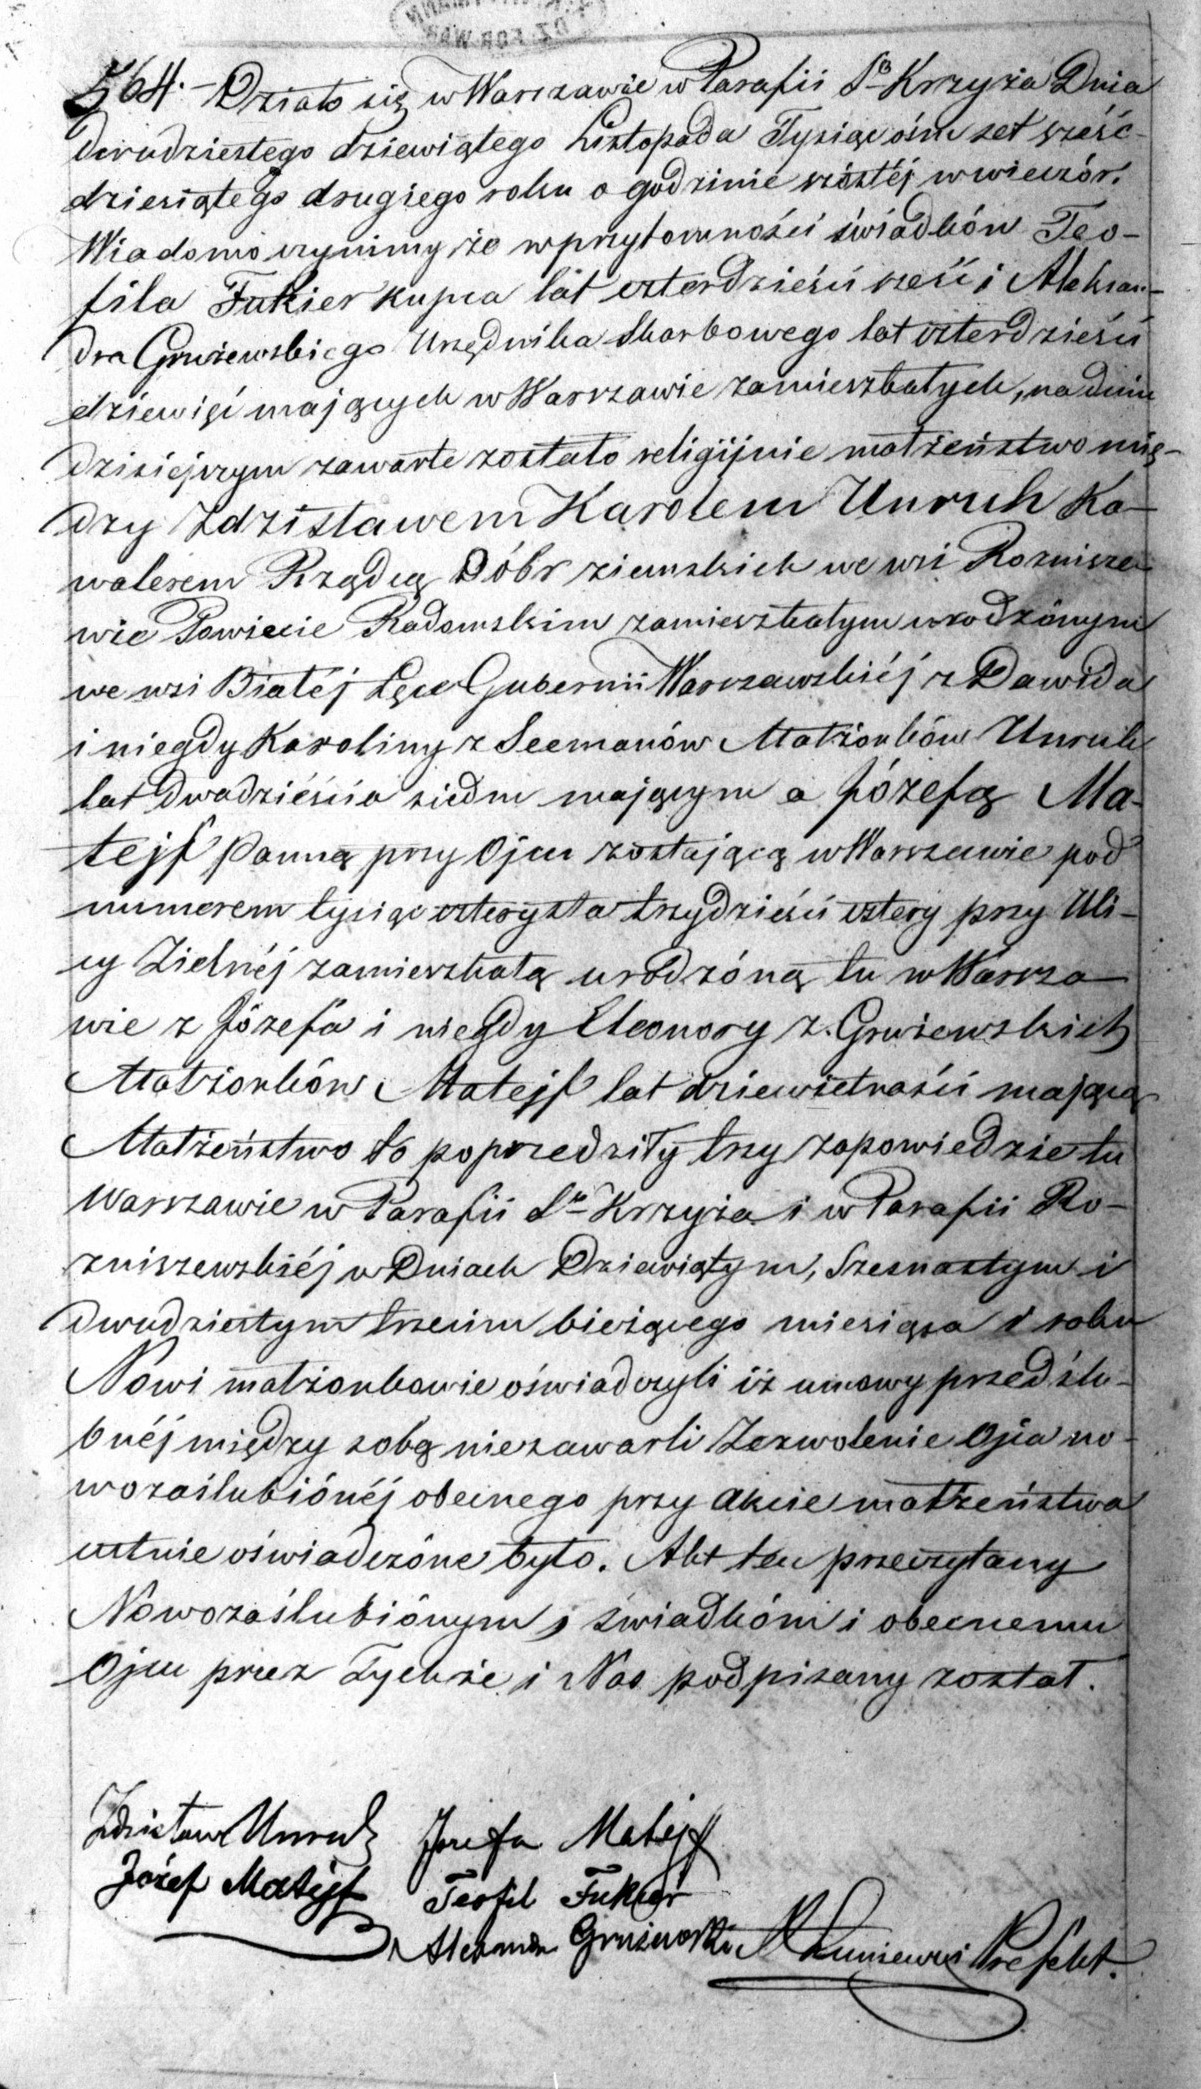 564. Działo się w Warszawie w Parafii Sgo Krzyża Dnia
dwudziestego dziewiątego Listopada Tysiąc ośm set sześć-
dziesiątego drugiego roku o godzinie szóstéj wwieczór.
Wiadomo czynimy że wprzytomności świadków Teo-
fila Fukier kupca lat czterdzieści sześć i Aleksan-
dra Grużewskiego Urzędnika Skarbowego lat czterdzieści
dziewięć mających w Warszawie zamieszkałych, na dniu
dzisiejszym zawarte zostało religijnie małżeństwo mię-
dzy Zdzisławem Karolem Unruh Ka-
walerem Rządcą Dóbr ziemskich we wsi Rozniszew
wie Powiecie Radomskim zamieszkałym urodzónym
we wsi Białéj Łęce Gubernii Warszawskiéj z Dawida
i niegdy Karoliny z Seemanów Małżonków Unruh
lat dwadzieścia siedm mającym a Józefą Ma-
tejf Panną przy Ojcu zostającą w Warszawie pod
numerem tysiąc czterysta trzydzieści cztery przy Uli-
cy Zielnéj zamieszkałą urodzóną tu w Warsza
wie z Józefa i niegdy Eleonory z Grużewskich
Małżonków Matejf lat dziewietnaści mającą
Małżeństwo to poprzedziły trzy zapowiedzie tu
Warszawie w Parafii Sgo Krzyża i w Parafii Ro-
zniszewskiéj w Dniach Dziewiątym, Szesnastym i
dwudziestym trzecim bieżącego miesiąca i roku
Nowi małżonkowie oświadczyli iż umowy przedślu-
bnéj między sobą niezawarli Zezwolenie Ojca no-
wozaślubiónéj obecnego przy akcie małżeństwa
ustnie oświadczóne było. Akt ten przeczytany
Nowozaślubiónym, świadkóm i obecnemu
Ojcu przez Tychże i Nas podpisany został.
Zdzisław Unruh Józefa Matejf
Józef Matejf Teofil Fukier
Grużewski Prefekt.